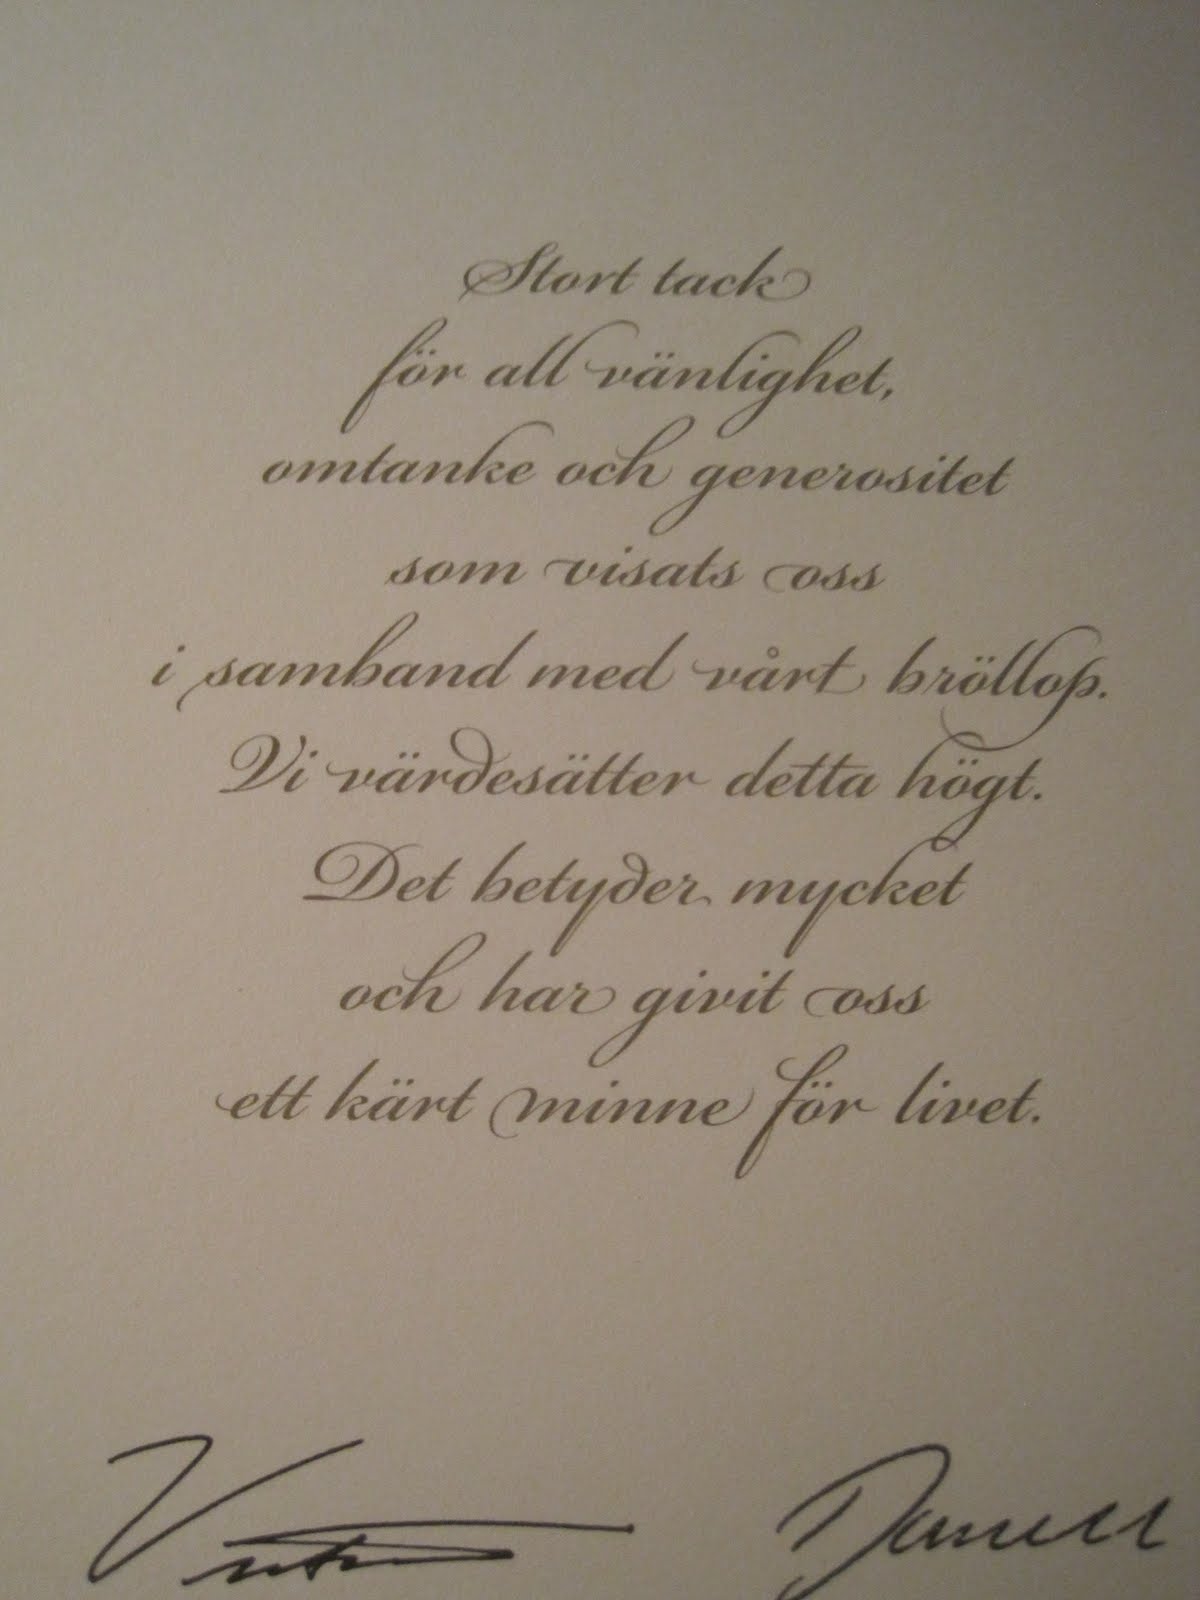 Stort tack
för all vänlighet,
omtanke och generositet
som visats oss
i samband med vårt bröllop.
Vi värdesätter detta högt.
Det betyder mycket
och har givit oss
ett kärt minne för livet.
Daniel